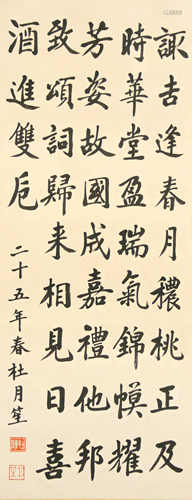 諏吉逢春月穠桃正及
時華堂盈瑞氣錦幙耀
芳姿故國成嘉禮他邦
致頌詞歸来相見日喜
酒進雙卮
二十五年春杜月笙